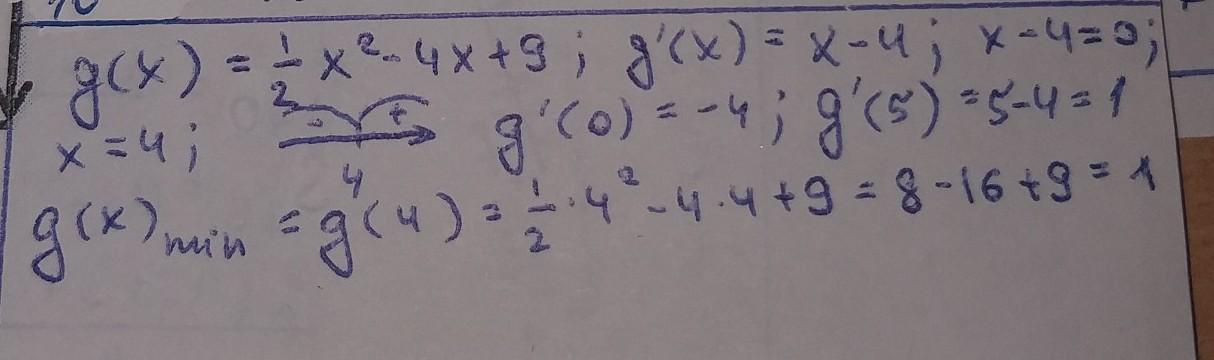 g(x) = 1/2 x² - 4x + 9 ; g'(x) = x - 4 ; x - 4 = 0 ;
x = 4 ; - + 4 g'(0) = -4 ; g'(5) = 5 - 4 = 1
g(x) min = g(4) = 1/2 · 4² - 4 · 4 + 9 = 8 - 16 + 9 = 1